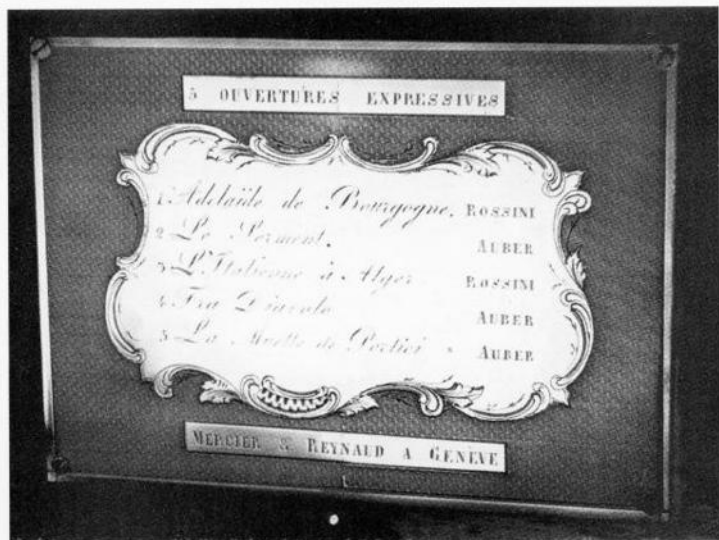 5 OUVERTURES EXPRESSIVES
1 Adelaïde de Bourgogne. ROSSINI
2 Le Serment. AUBER
3 L'Italienne à Alger ROSSINI
4 Fra Diavolo AUBER
5 La Muette de Portici " AUBER
MERCIER & REYNALD A GENÈVE